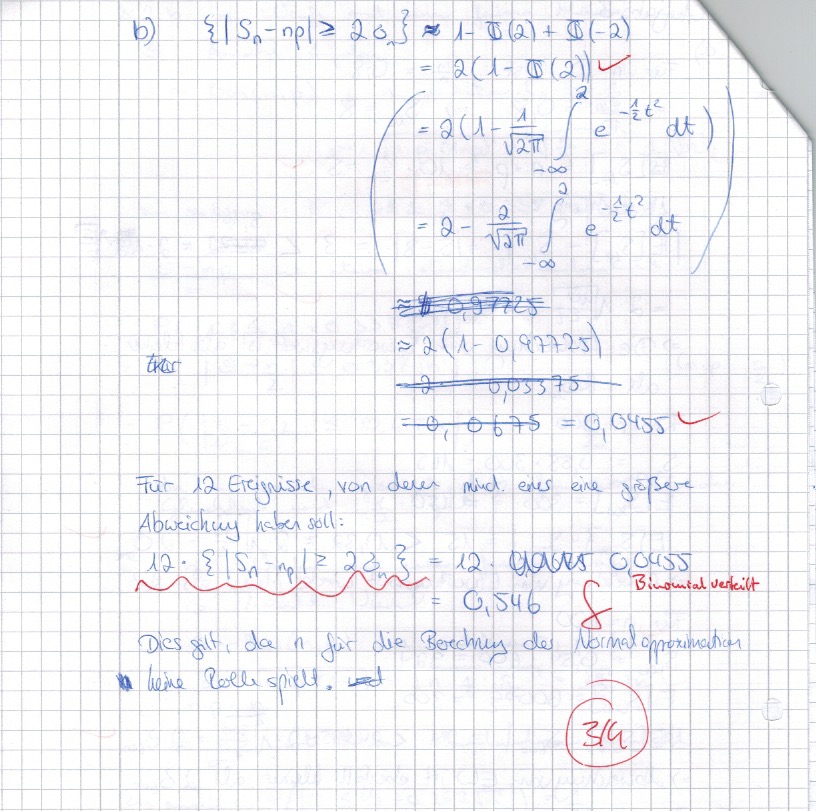 b) {|Sₙ-np| ≥ 2σₙ} ≈ 1-Φ(2)+Φ(-2)
= 2(1-Φ(2)) ✓
= 2(1-1/√2π ∫_{-∞}^{2} e^{-½t²} dt)
= 2 - 2/√2π ∫_{-∞}^{2} e^{-½t²} dt
≈ 0,97725
≈ 2(1-0,97725)
= 0,0455 ✓
Für 12 Ereignisse, von denen mind. eines eine größere
Abweichung haben soll:
12 · {|Sₙ-np| ≥ 2σₙ} = 12 · 0,0455
Binomialverteilt
= 0,546
Dies gilt, da n für die Berechnung der Normalapproximation
keine Rolle spielt.
3/4